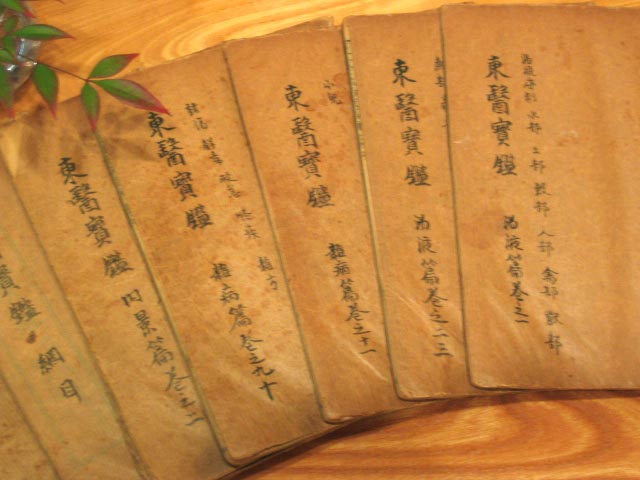 湯液序例 水部 土部 穀部 人部 禽部 獸部
東醫寶鑑 湯液篇卷之一
東醫寶鑑 湯液篇卷之二三
小兒
東醫寶鑑 雜病篇卷之十一
諸傷 解毒 救急 怪疾 雜方
東醫寶鑑 雜病篇卷之九十
東醫寶鑑 內景篇卷之二
寶鑑 綱目